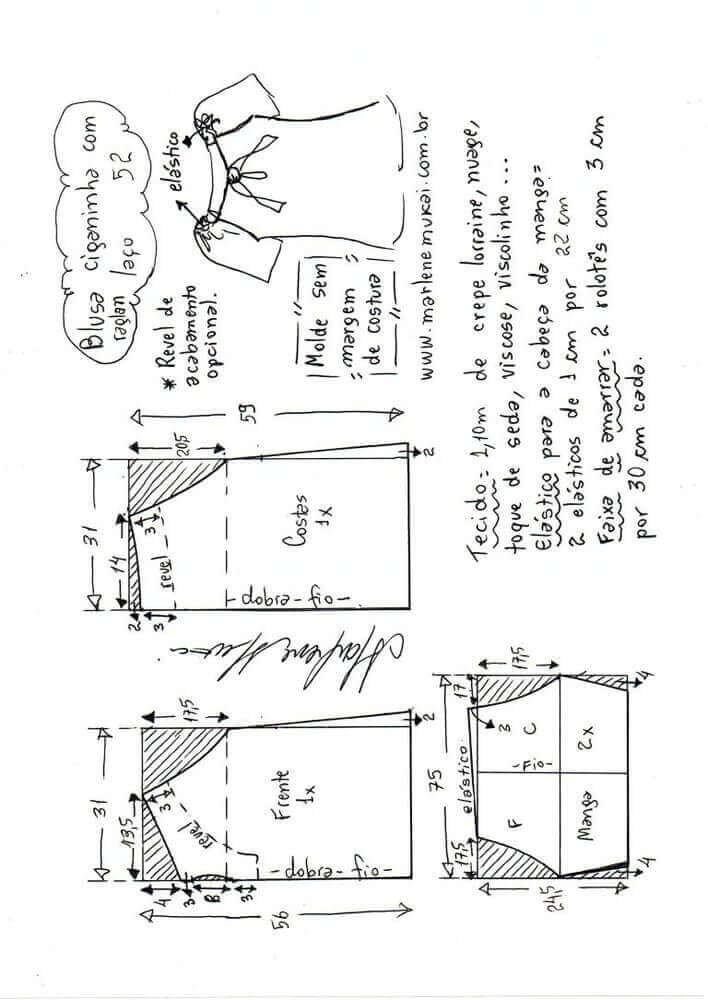 Blusa ciganinha com
raglan laço 52
* Revel de
acabamento
opcional.
elástico
Molde sem
margem
de costura
www.marlenemukai.com.br
59
20,5
31
14
3
revel
2
3
Costas
1x
-dobra-fio-
2
56
31
17,5
13,5
3
revel
4
3
8
3
Frente
1x
-dobra-fio-
2
Marlene Mukai
75
17,5
17
elástico
17,5
3
F
C
-Fio-
Manga
2x
24,5
4
4
Tecido= 1,10m de crepe lorraine, nuage,
toque de seda, viscose, viscolinho...
Elástico para a cabeça da manga=
2 elásticos de 1 cm por 22 cm
Faixa de amarrar= 2 rolotês com 3 cm
por 30 cm cada.